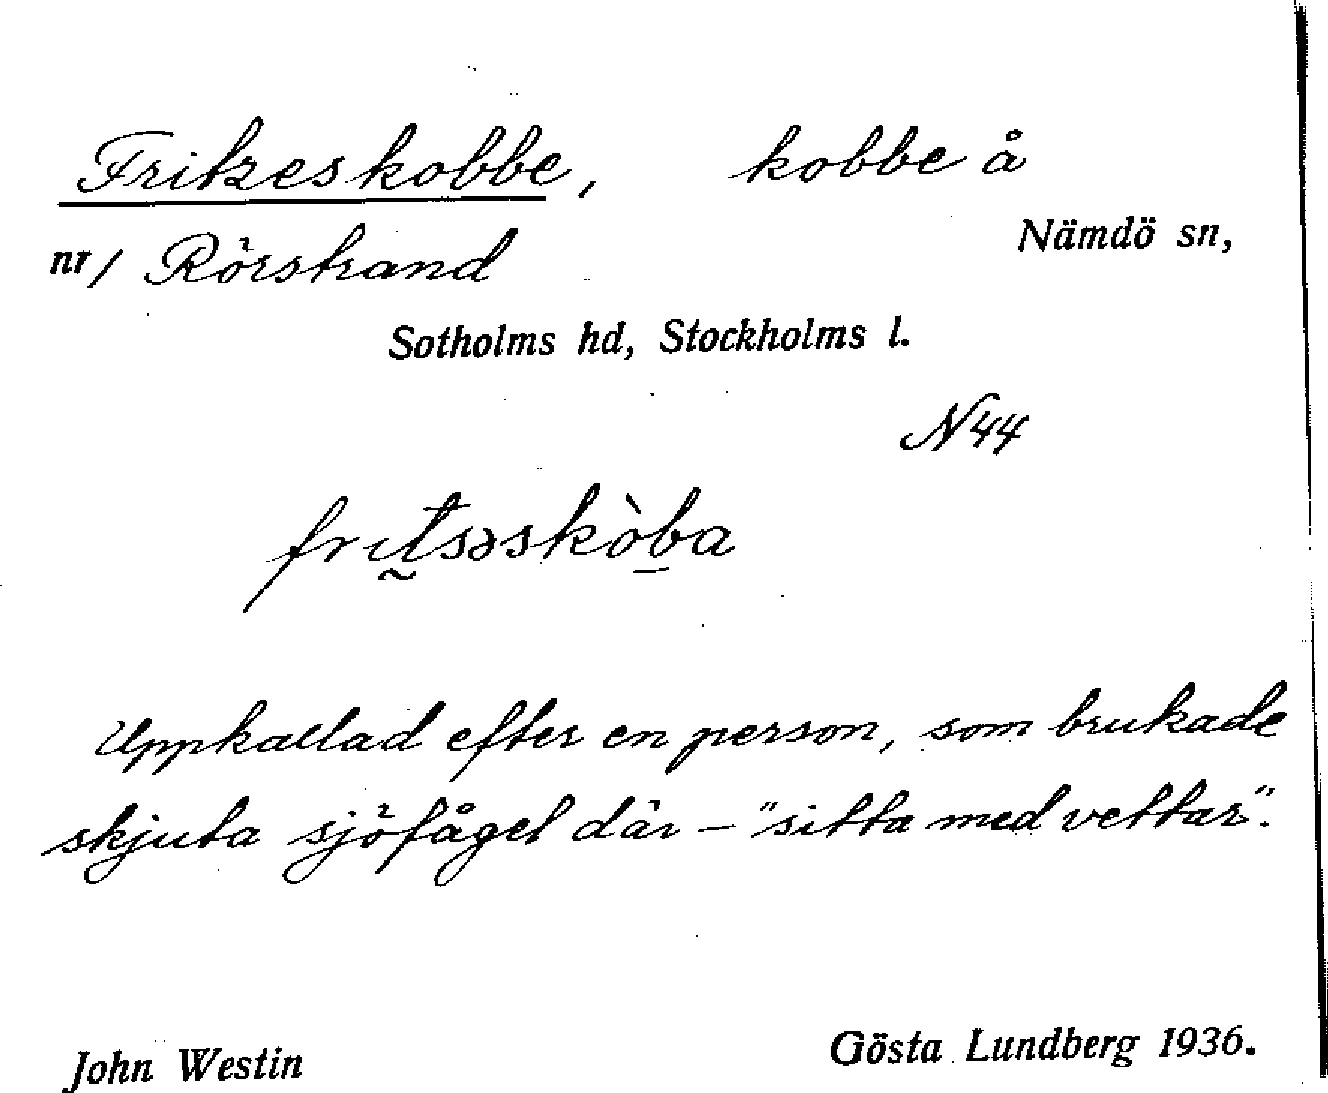 Fritzeskobbe, kobbe å
Nämdö sn,
nr/ Rörstrand
Sotholms hd, Stockholms l.
N44
frıt̰səskòb̲a
Uppkallad efter en person, som brukade
skjuta sjöfågel där – "sitta med vettar".
John Westin Gösta Lundberg 1936.